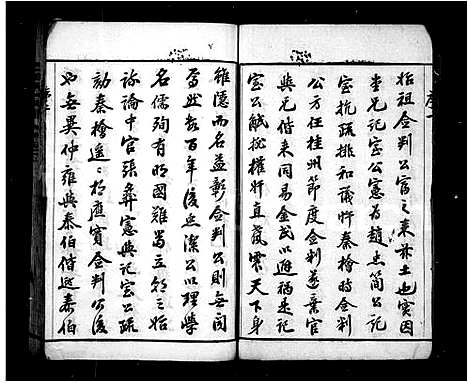 始祖僉判公官之来兹土也實因
堂兄記室公憲為趙忠簡公記
室抗疏排和議忤秦檜時僉判
公方任桂州節度僉判遂棄官
與兄偕来同易金氏以避禍是记
室公觝忤權奸直氣震天下身
雖隱而名益彰僉判公則無聞
焉然数百年後迪潔公以理學
名儒殉有明國難為立郡之始
諭中官張彝憲與記室公疏
劾秦檜遙遙相應實僉判公後
也無異仲雍與泰伯偕逃泰伯